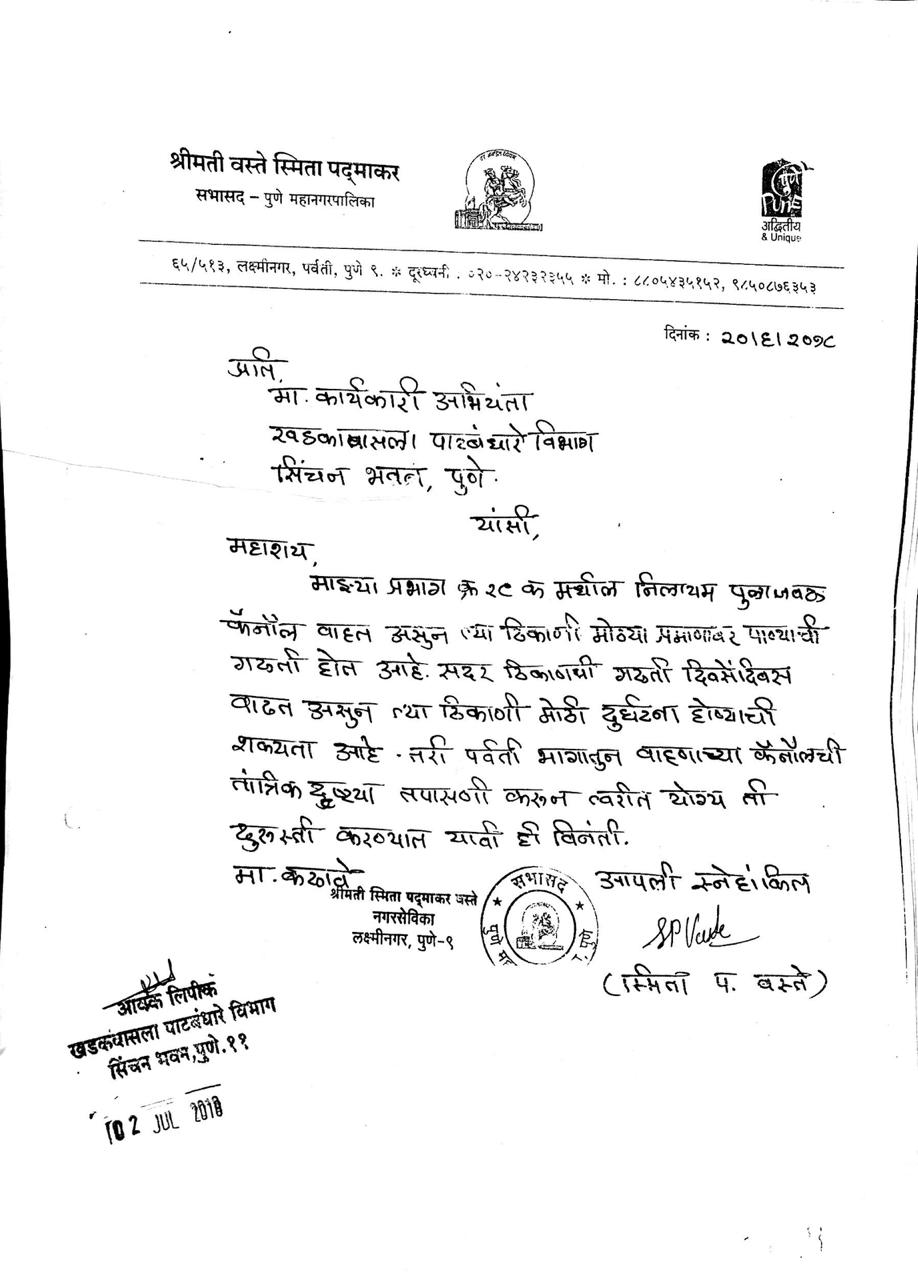 श्रीमती वस्ते स्मिता पद्‌माकर
सभासद – पुणे महानगरपालिका
पुणे
PUNE
अद्वितीय
& Unique
६५/५१३, लक्ष्मीनगर, पर्वती, पुणे ९. ❊ दूरध्वनी : ०२०-२४२३२३५५ ❊ मो. : ८८०५४३५१५२, ९८५०८७६३५३
दिनांक : २०/६/२०१८
प्रति,
मा. कार्यकारी अभियंता
खडकावासला पाटबंधारे विभाग
सिंचन भवन, पुणे.
यांसी,
महाशय,
माझ्या प्रभाग क्र २९ क मधील निलायम पुलाजवळ
कॅनॉल वाहत असुन त्या ठिकाणी मोठ्या प्रमाणावर पाण्याची
गळती होत आहे. सदर ठिकाणची गळती दिवसेंदिवस
वाढत असुन त्या ठिकाणी मोठी दुर्घटना होण्याची
शक्यता आहे. तरी पर्वती भागातुन वाहणाच्या कॅनॉलची
तांत्रिक दृष्ट्या तपासणी करून त्वरीत योग्य ती
दुरुस्ती करण्यात यावी ही विनंती.
मा. कळावे
आपली स्नेहांकित
श्रीमती स्मिता पद्‌माकर वस्ते
नगरसेविका
लक्ष्मीनगर, पुणे-९
सभासद
पुणे मह
SPVaste
(स्मिता प. वस्ते)
आवक लिपीक
खडकवासला पाटबंधारे विभाग
सिंचन भवन,पुणे.११
02 JUL 2018